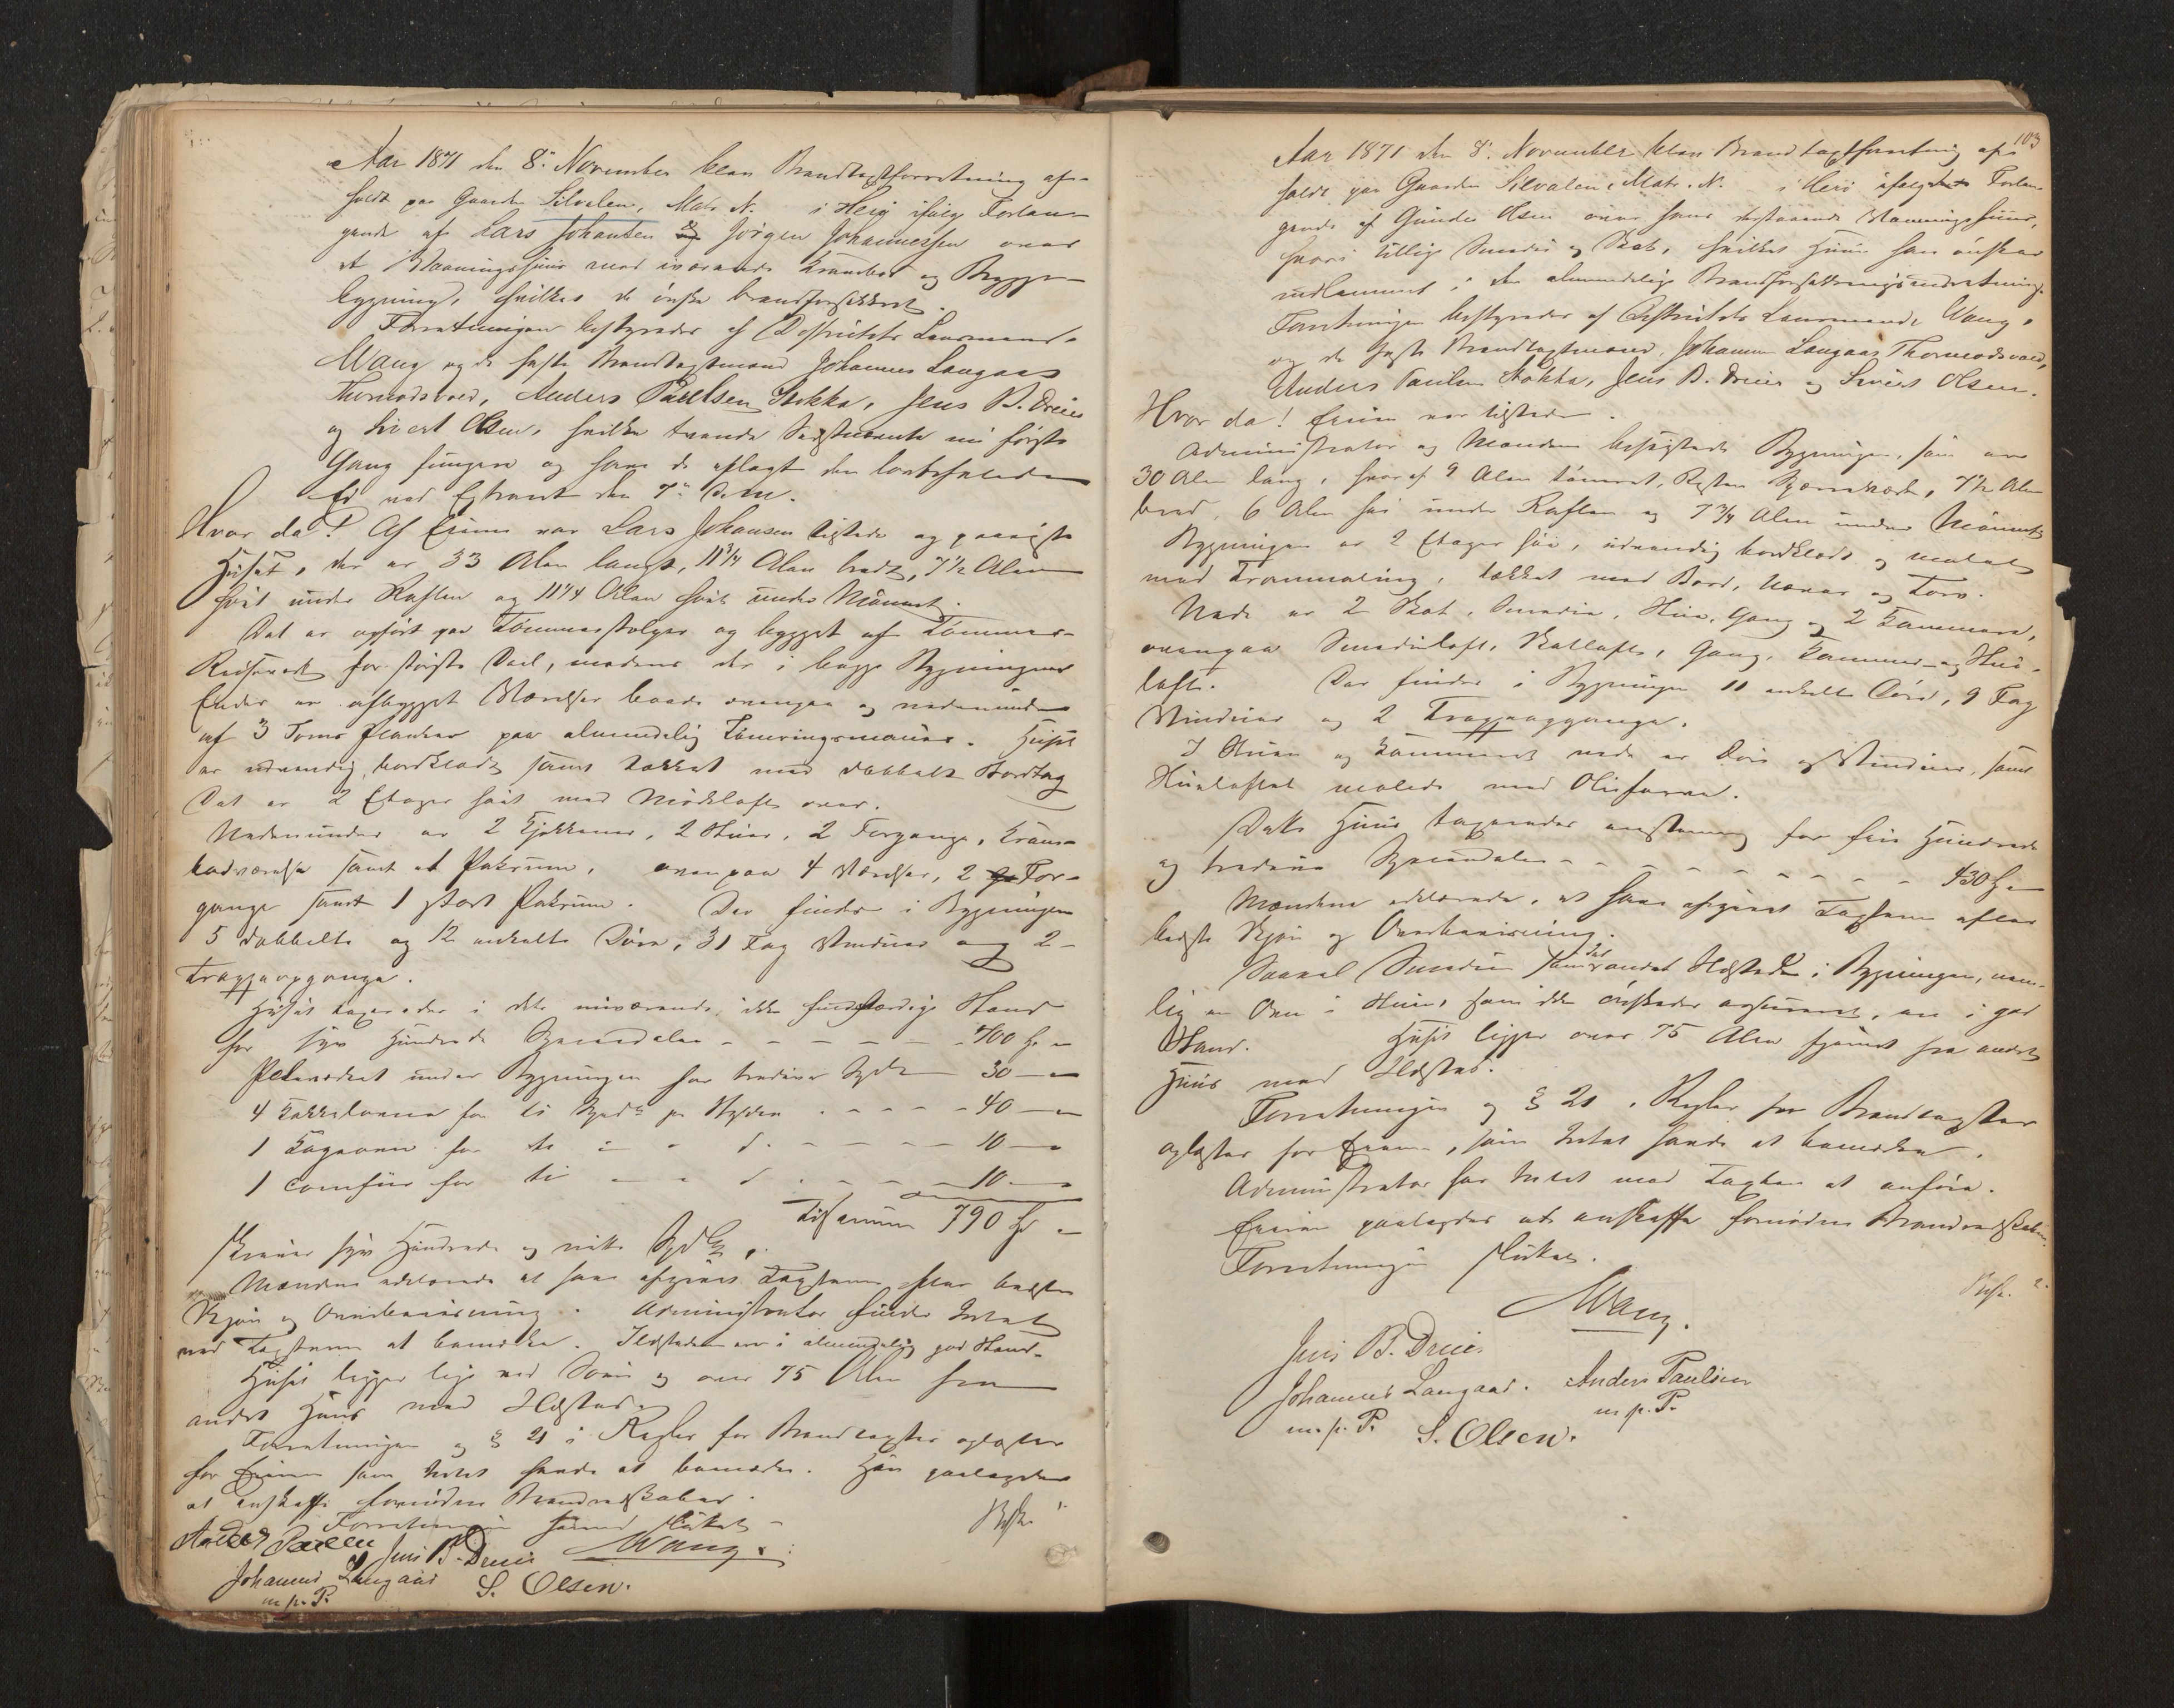 Aar 1871 den 8de November blev Brandtaxtforretning af-
holdt paa Gaarden Silvalen, Matr. N. i Herø ifølge Forlan-
gende af Lars Johansen og Jørgen Johannessen over
et Vaaningshuus med iværende Krambod og Brygge-
bygning, hvilket de ønske brandforsikkret.
Forretningen bestyredes af Distriktets Lensmand
Wang og de faste Brandtaxtmænd Johannes Langaas
Thormodsvaed, Anders Paulsen Stokka, Jens B. Dreier
og Sivert Olsen, hvilke tvende Sidstnævnte nu første
Gang fungere og have de aflagt den lovbefalede
Ed ved Extraret den 7de ds.
Hvor da! Af Eierne var Lars Johansen tilstede og paaviste
Huset, der er 33 Alen langt, 11 3/4 Alen bredt, 7 1/2 Alen
høit under Raften og 11 1/4 Alen høit under Mønnet.
Det er opført paa Tømmerstolper og bygget af Tømmer-
Reisverk for største Deel, medens der i begge Bygningens
Ender er afbygget Værelser baade ovenpaa og nedenunder
af 3 Toms Planker paa almindelig Tømringsmaneer. Huset
er udvendig bordklædt samt tækket med dobbelt Bordtag
Det er 2 Etager høit med Mørkloft over.
Nedenunder er 2 Kjøkkener, 2 Stuer, 2 Forgange, Kram-
bodværelse samt et Pakrum, ovenpaa 4 Værelser, 2 For-
gange samt 1 stort Pakrum. Der findes i Bygningen
5 dobbelte og 12 enkelte Døre, 31 Fag Vinduer og 2
Trappeopgange.
Huset taxeredes i dets nuværende, ikke fuldfærdige Stand
for syv Hundrede Speciedaler - - - - - - 700 Sp -
Pæleværket under Bygningen for tredive Spdlr - 30 -
4 Kakkelovne for ti Spdlr pr Stykke - - - - 40 -
1 Bageovn for ti - - d. - - - - 10 -
1 Comfur for ti - - d. - - - 10 -
Tilsammen 790 Sp -
skriver syv Hundrede og niti Spdlr.
Mændene erklærede at have afgivet Taxtsum efter bedste
Skjøn og Overbeviisning. Administrator finder Intet
ved Taxtsum at bemærke. Ildstederne ere i almindelig god Stand.
Huset ligger lige ved Søen og over 75 Alen fra
andet Huus med Ildsted.
Forretningen og § 21 i Regler for Brandtaxter oplæstes
for Eieren som Intet havde at bemærke. Han paalagdes
at anskaffe fornødne Brandredskaber.
Forretningen hermed sluttet -
Besk. 1.
Anders Paulsen Jens B. Dreier Wang.
Johannes Langaas S. Olsen.
m. p. P.
103
Aar 1871 den 8de November blev Brandtaxtforretning af-
holdt paa Gaarden Silvalen, Matr. N. i Herø ifølge Forlan-
gende af Gunder Olsen over hans derstaaende Vaaningshuus,
hvori tillige Smedie og Skot, hvilket Huus han ønsker
indlemmet i den almindelige Brandforsikkringsindretning.
Forretningen bestyredes af Distriktets Lensmand, Wang,
og de faste Brandtaxtmænd, Johannes Langaas Thormodsvaed,
Anders Paulsen Stokka, Jens B. Dreier og Sivert Olsen.
Hvor da! Eieren var tilstede.
Administrator og Mændene besigtede Bygningen, som er
30 Alen lang, hvoraf 9 Alen tømret, Resten Bjerreværk, 7 1/2 Alen
bred, 6 Alen høi under Raften og 7 3/4 Alen under Mønnet
Bygningen er 2 Etager høi, udvendig bordklædt og malet
med Tranmaling, tækket med Bord, Næver og Torv.
Nede er 2 Skot, Smedie, Stue, Gang og 2 Kammere,
ovenpaa Smedieloft, Skotloft, Gang, Kammer og Stue-
loft. Der findes i Bygningen 11 enkelte Døre, 9 Fag
Vinduer og 2 Trappeopgange.
I Stuen og Kammeret nede er Døre og Vinduer, samt
Stueloftet malede med Oliefarve.
Dette Huus taxeredes enstemmig for fire Hundrede
og tredive Speciedaler - - - - - - - - 430 Sp -
Mændene erklærede, at have afgivet Taxtsum efter
bedste Skjøn og Overbeviisning.
Saavel Smedien som det andet Ildsted i Bygningen, nem-
lig en Ovn i Stuen, som ikke ønskedes assureret, er i god
Stand. Huset ligger over 75 Alen fjernet fra andet
Huus med Ildsted.
Forretningen og § 21 i Regler for Brandtaxter
oplæstes for Eieren, som Intet havde at bemærke.
Administrator har Intet mod Taxten at anføre.
Eieren paalagdes at anskaffe fornødne Brandredskaber.
Forretningen sluttet.
Besk. 2.
Wang.
Jens B. Dreier.
Johannes Langaas. Anders Paulsen
m. p. P. S. Olsen. m. p. P.